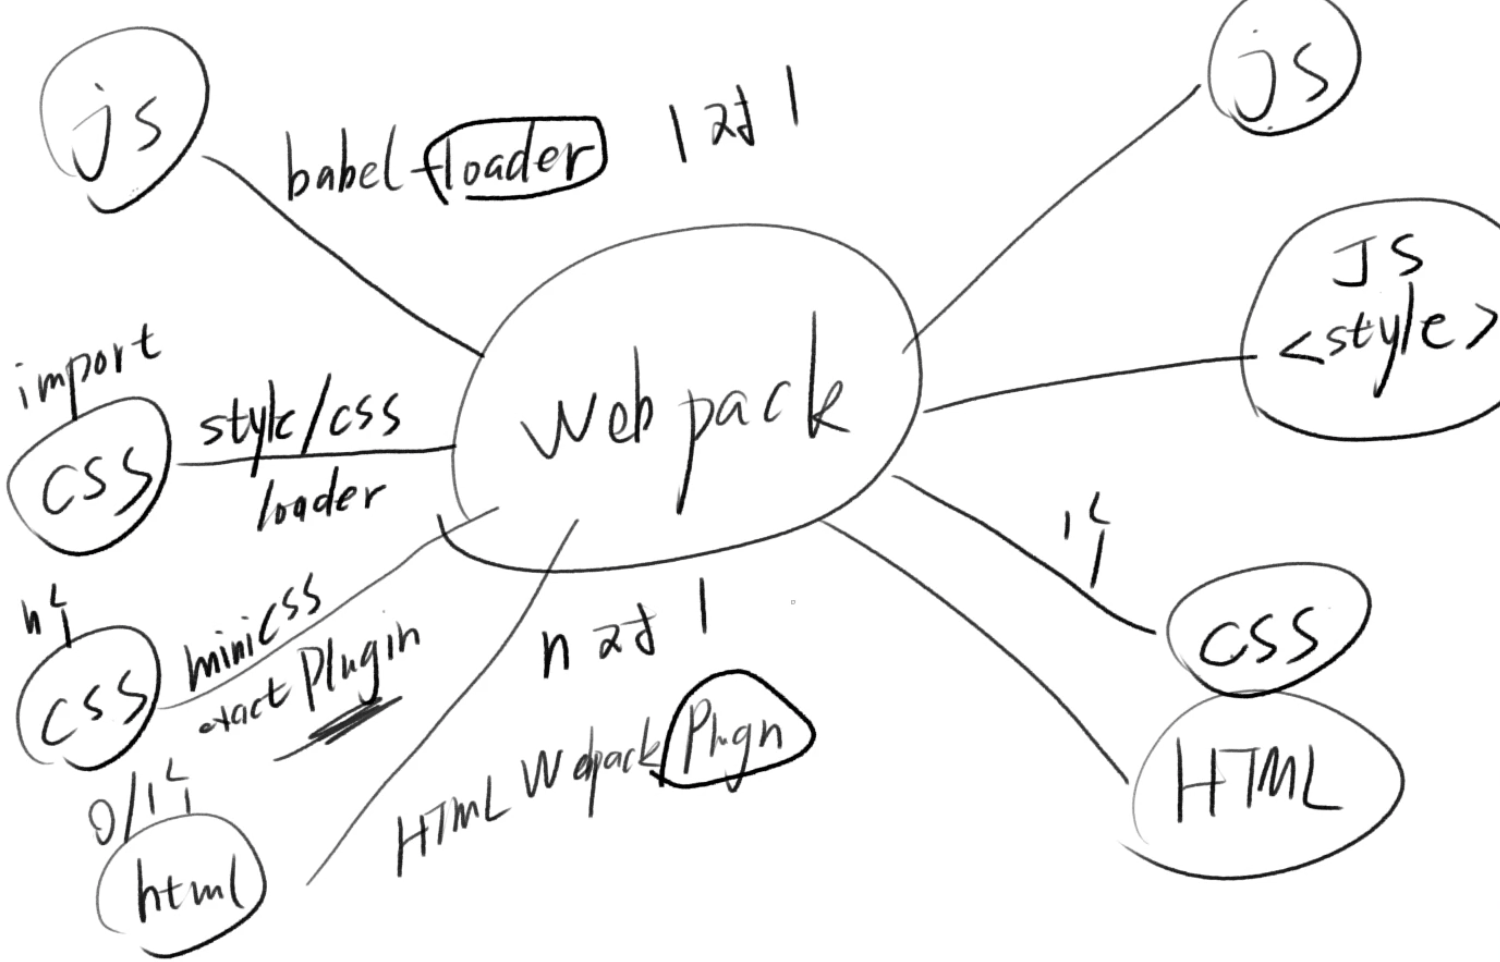 js
babel-loader
1 对 1
js
JS
<style>
import
css
style/css
loader
webpack
n个
css
minicss
exact Plugin
n 对 1
1个
css
0/1个
html
HTML Webpack Plugn
HTML